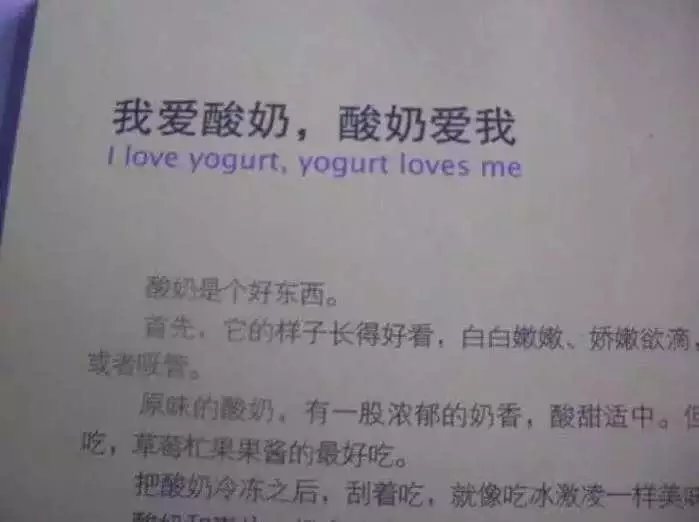 我爱酸奶，酸奶爱我
I love yogurt, yogurt loves me
酸奶是个好东西。
首先，它的样子长得好看，白白嫩嫩、娇嫩欲滴，
或者吸管。
原味的酸奶，有一股浓郁的奶香，酸甜适中。但
吃，草莓杧果果酱的最好吃。
把酸奶冷冻之后，刮着吃，就像吃冰激凌一样美
酸奶和